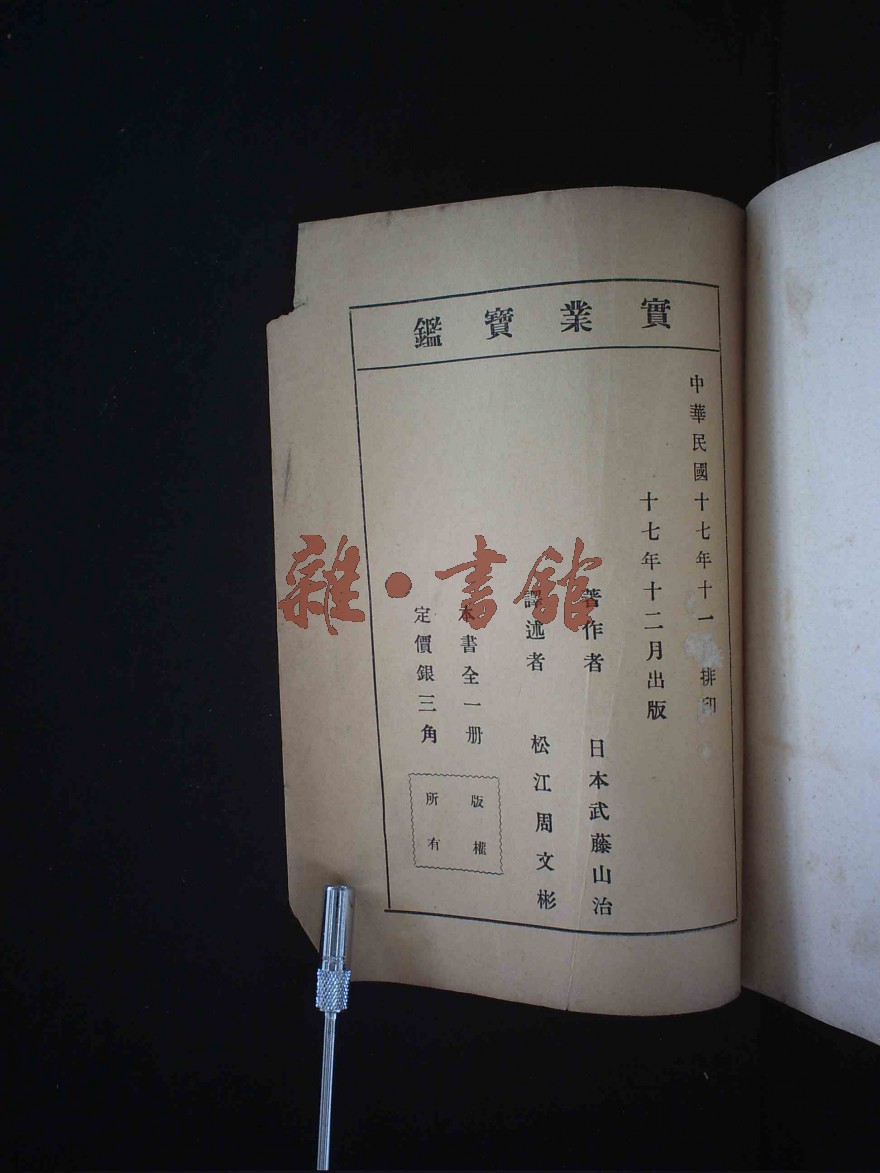 實業寶鑑
中華民國十七年十一 排印
十七年十二月出版
著作者 日本武藤山治
譯述者 松江周文彬
本書全一册
定價銀三角
版權
所有
雜·書館